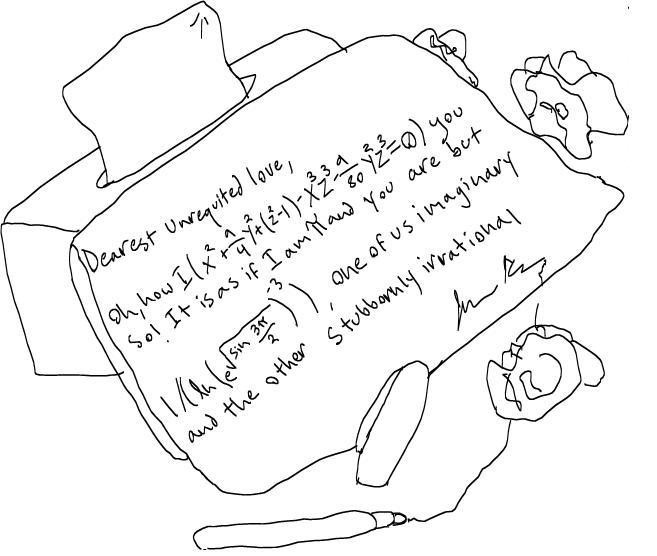 Dearest Unrequited love,
Oh, how I (x² + 9/4 y² + (z² - 1) - x³z³ - 9/80 y²z³ = 0) you
so! It is as if I am π and you are but
1/(ln(e√sin 3π/2)⁻³)), one of us imaginary
and the other stubbornly irrational